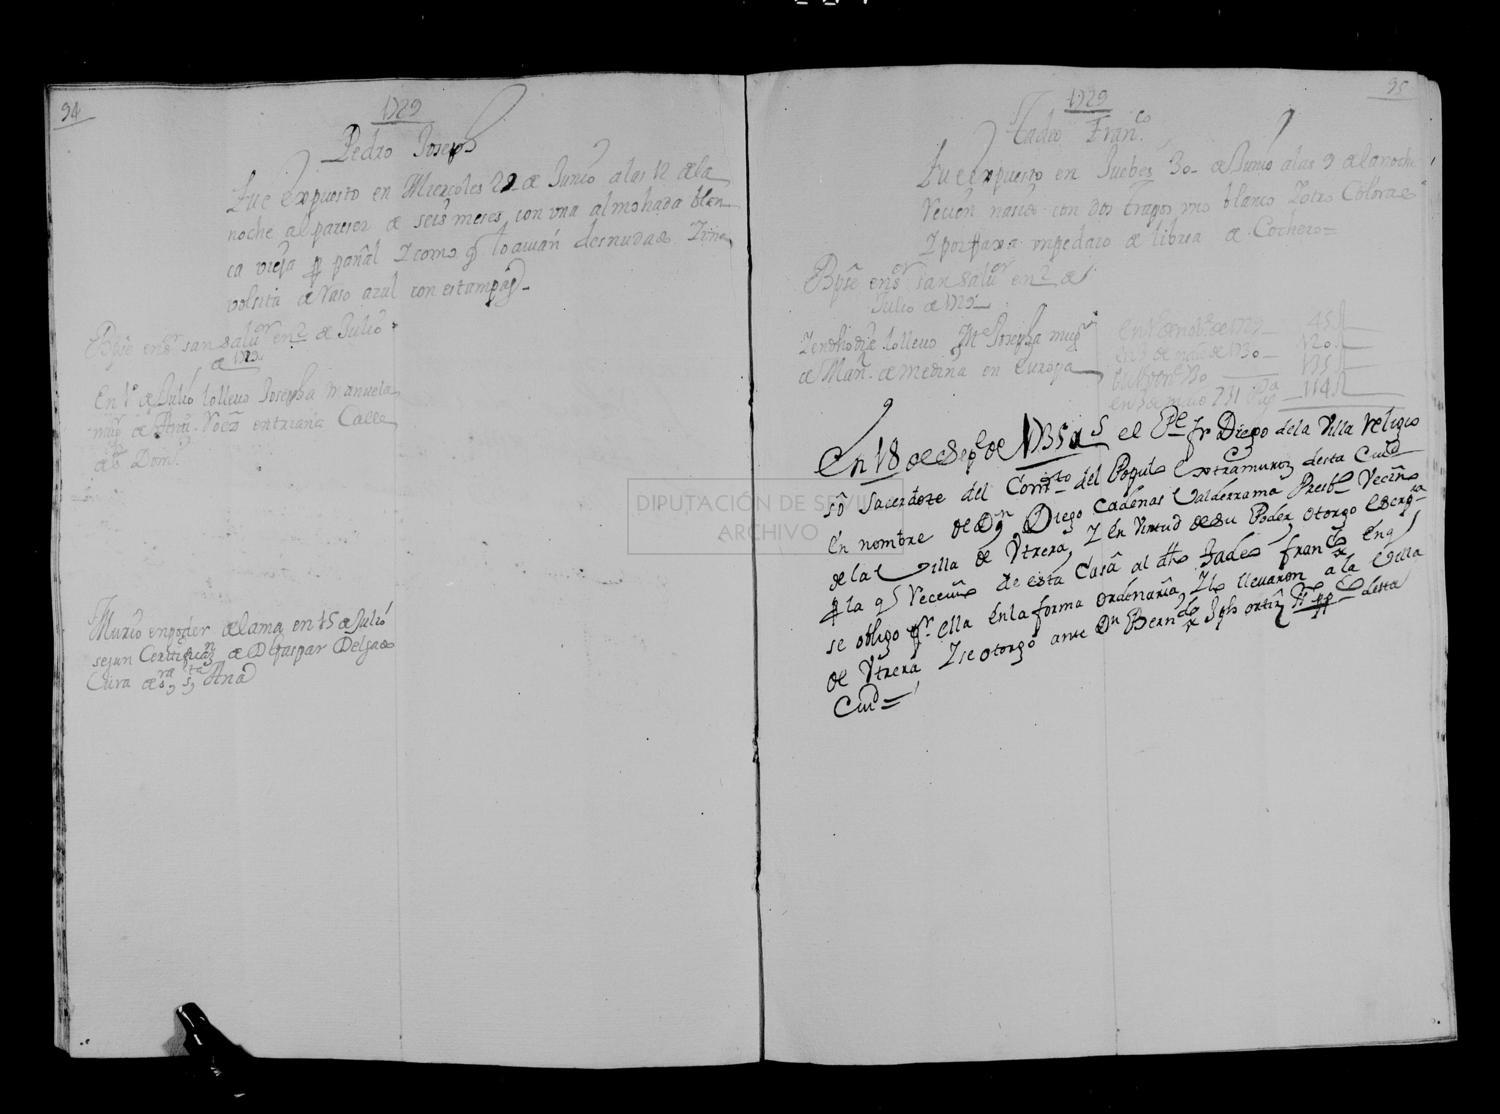 94
1729
Pedro Joseph
Fue expuesto en Miercoles 29 de Junio a las 12 de la
noche al pareser de seis meses con una almohada blan
ca vieja pr pañal y como q lo avian desnudado y una
volsita de raso azul con estampa
Bpse en sr san salvor en 2 de Julio
de 1729
En 1º de Julio lo llevo Josepha Manuela
mugr de Antt. en triana Calle
de sto Domo
Murio en poder del ama en 15 de Julio
segun Certificazn de D Gaspar Delgado
Cura de sra sta Ana
95
1729
Tadeo Franco
Fue expuesto en Juebes 30 de Junio a las 9 de la noche
recien nasido con dos trapos uno blanco y otro Colorado
y por faxa un pedaro de librea de Cochero =
Bpse en sr san salvor en 2 de
Julio de 1729
y en dho dia lo llevo Ma Josepha mugr
de Manl de medina en europa
en 1º de nobe de 1729 45
en 3 de de 1730 120
135
en 3 de maio 731 114
En 18 de Sepe de 1735 as el Pe fr Diego de la Villa religio
so Sacerdote del Convto del Populo extramuros desta Ciud
en nombre de Dn Diego Cadenas Valderrama Presbo Vecino
de la Villa de Utrera, y en Virtud de su Poder, otorgo escrpra
pr la q Recevio de esta Casa al dho Tadeo Franco en q
se obligo pr ella en la forma ordenaria, y lo llevaron a la Villa
de Utrera y se otorgo ante Dn Berndo Jph ortiz desta
Ciud =
DIPUTACIÓN DE SEVILLA
ARCHIVO